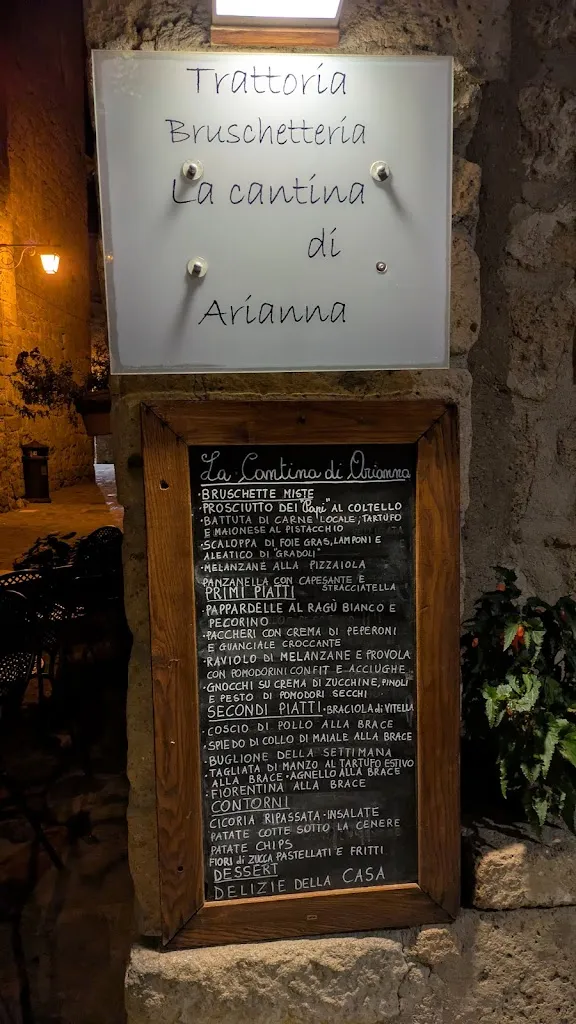 Trattoria
Bruschetteria
La cantina
di
Arianna
La Cantina di Arianna
BRUSCHETTE MISTE
·PROSCIUTTO DEI "Papi" AL COLTELLO
·BATTUTA DI CARNE LOCALE, TARTUFO
E MAIONESE AL PISTACCHIO
·SCALOPPA DI FOIE GRAS, LAMPONI E
ALEATICO DI "GRADOLI"
·MELANZANE ALLA PIZZAIOLA
PANZANELLA CON CAPESANTE E
STRACCIATELLA
PRIMI PIATTI
·PAPPARDELLE AL RAGÙ BIANCO E
PECORINO
·PACCHERI CON CREMA DI PEPERONI
E GUANCIALE CROCCANTE
·RAVIOLO DI MELANZANE E PROVOLA
CON POMODORINI CONFIT E ACCIUGHE
·GNOCCHI SU CREMA DI ZUCCHINE, PINOLI
E PESTO DI POMODORI SECCHI
SECONDI PIATTI ·BRACIOLA di VITELLA
·COSCIO DI POLLO ALLA BRACE
·SPIEDO DI COLLO DI MAIALE ALLA BRACE
·BUGLIONE DELLA SETTIMANA
·TAGLIATA DI MANZO AL TARTUFO ESTIVO
ALLA BRACE ·AGNELLO ALLA BRACE
·FIORENTINA ALLA BRACE
CONTORNI
CICORIA RIPASSATA · INSALATE
PATATE COTTE SOTTO LA CENERE
PATATE CHIPS
FIORI di ZUCCA PASTELLATI E FRITTI
DESSERT
DELIZIE DELLA CASA